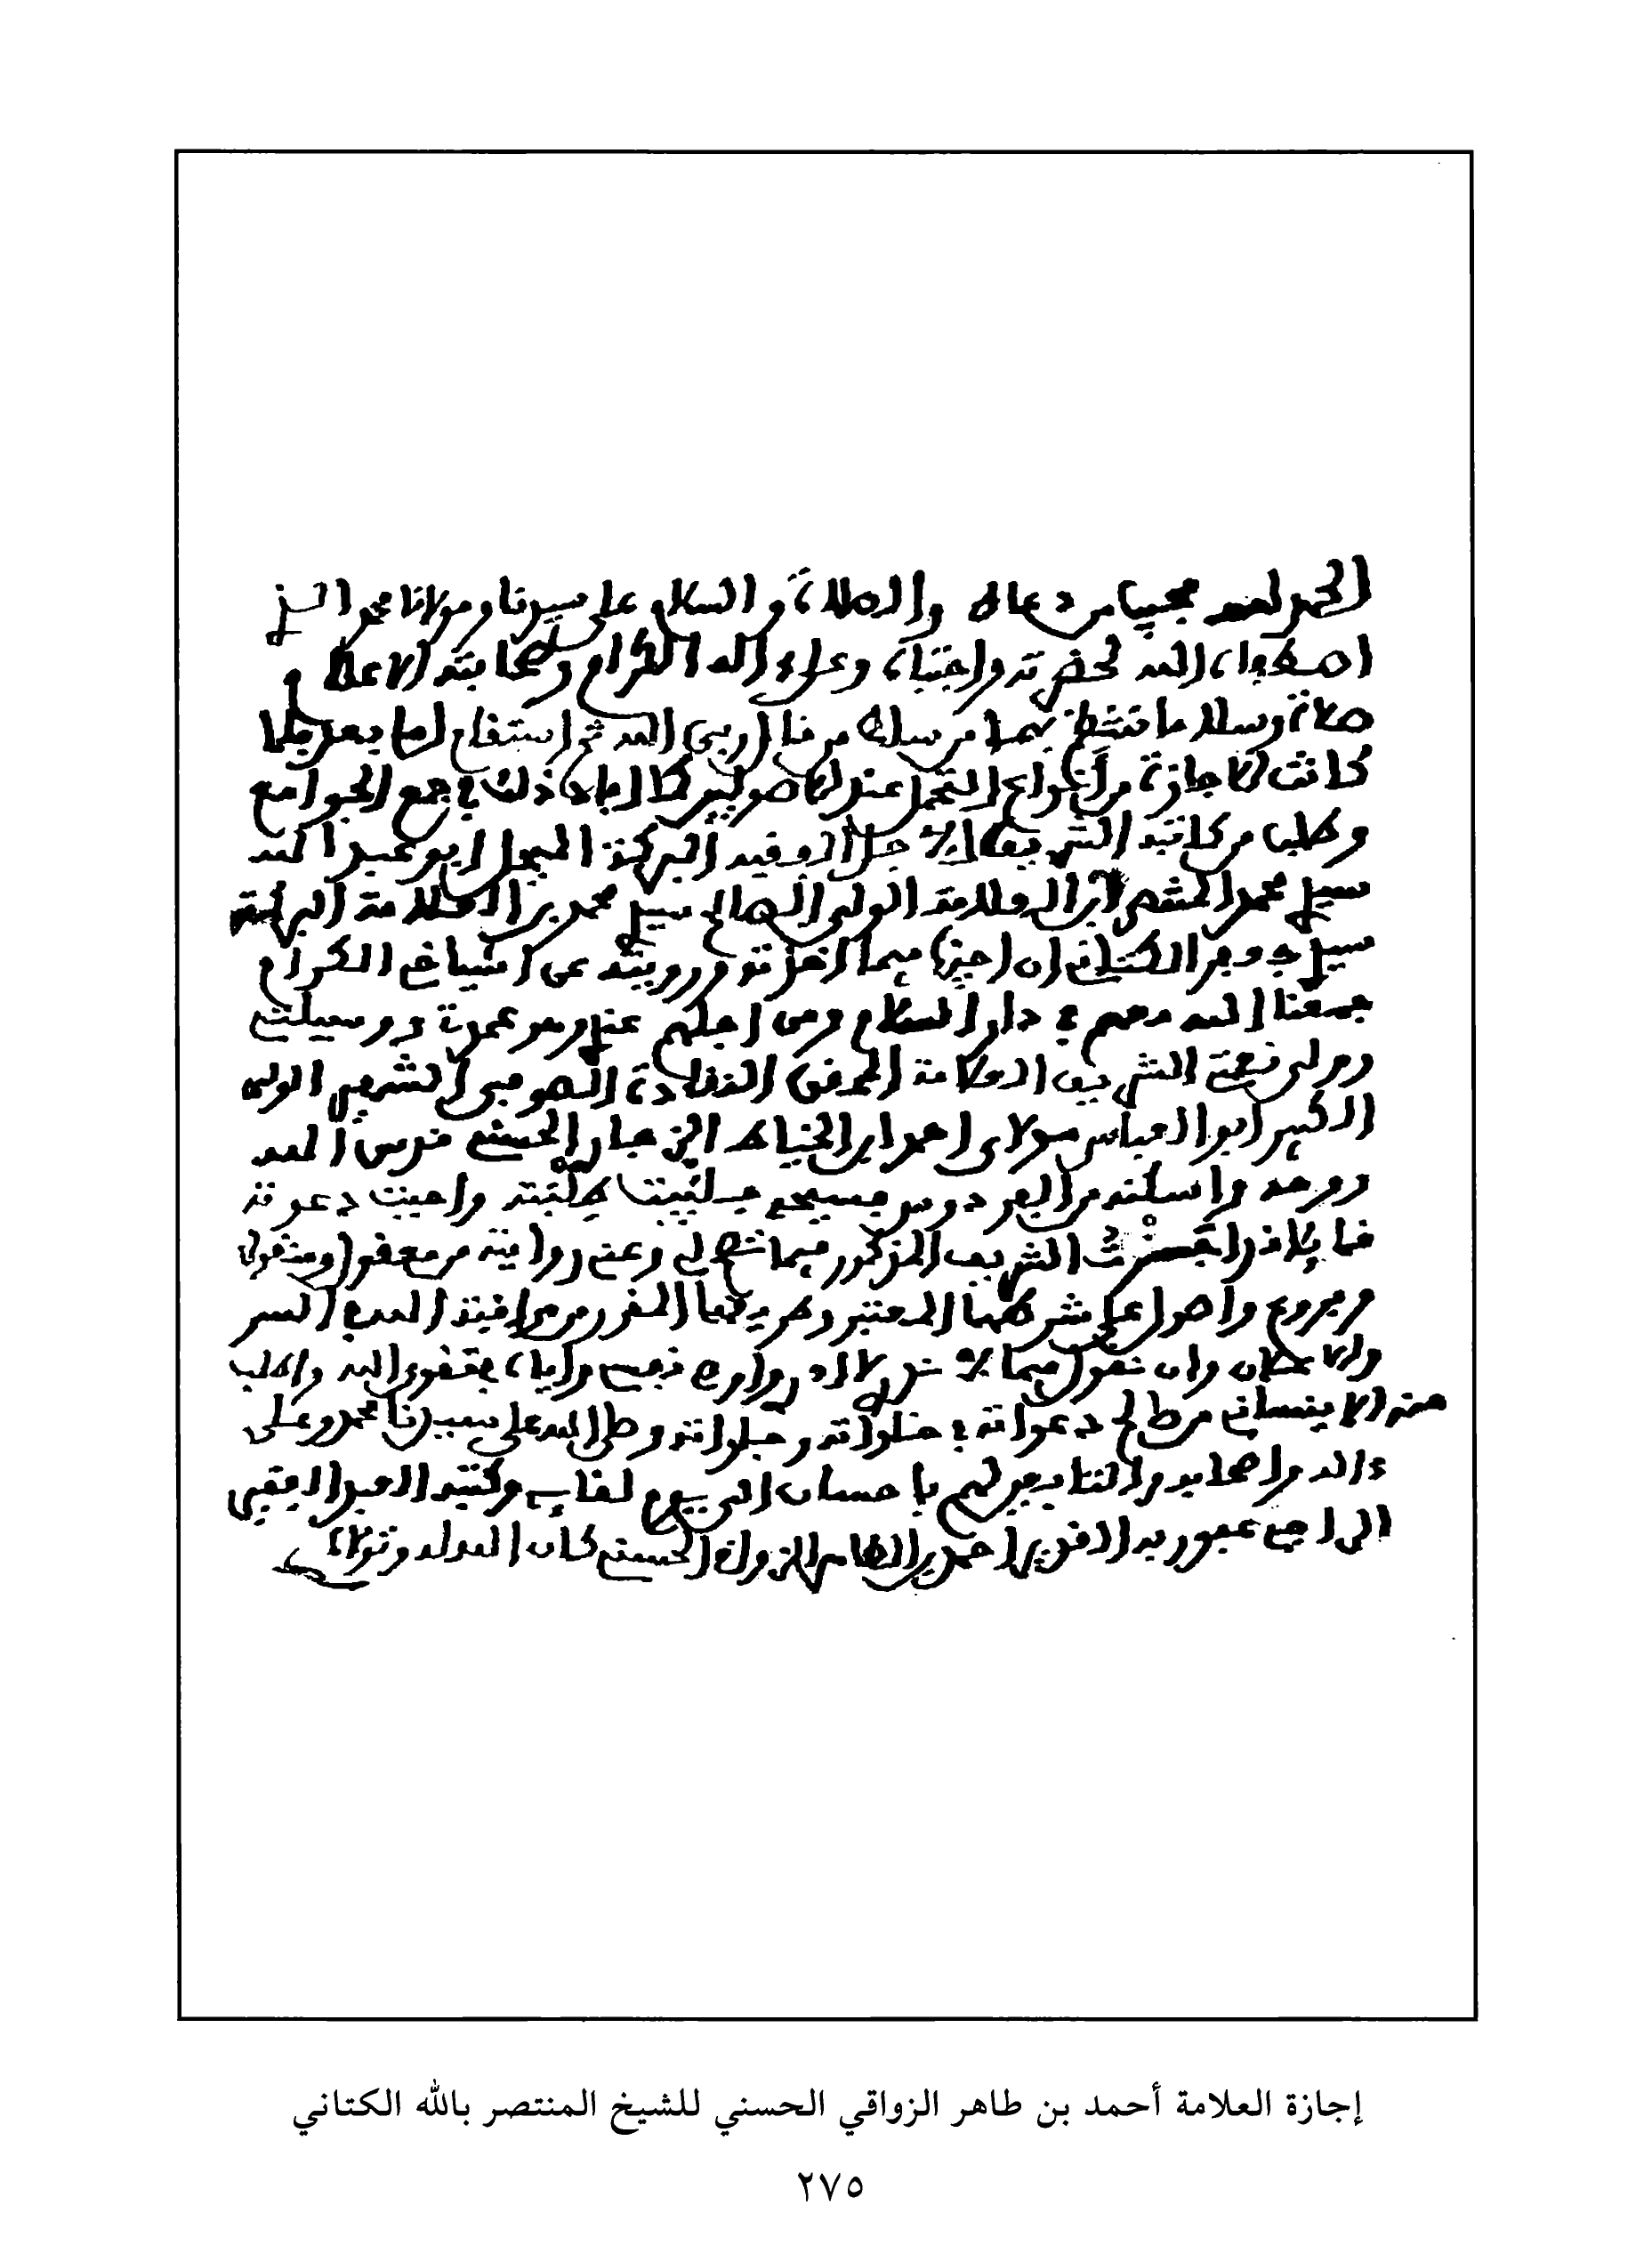 الحمد لله مجيب من دعاه والصلاة والسلام على سيدنا ومولانا محمد الذي
اصطفاه الله لحضرته واجتباه وعلى ءاله الكرام وصحابته الاعلام
صلاة وسلاما ننتظم بهما من سلك من فاز برضى الله ثم استفاع اما بعد فلما
كانت الاجازة من أنواع التحمل عند الاصوليين كما ابان ذلك في جمع الجوامع
وطلب من كاتبه الشريف الاجل الفقيه البركة المبجل ابو عبد الله
سيدي محمد المنتصر ابن العلامة الولي الصالح سيدي محمد بن العلامة البركة
سيدي جعفر الكتاني ان اجيزه فيما اخذته ورويته عن اشياخي الكرام
جمعنا الله معهم في دار السلام ومن اجلهم عندي وهو عمدتي ووسيلتي
وولي نعمتي الشريف العلامة المحقق النقادة الصوفي الشهير الولي
الكبير ابو العباس مولاي احمد ابن الخياط الزجاري الحسني قدس الله
روحه واسكنه من الفردوس فسيحه فلبيت طلبته واجبت دعوته
قائلا قد اجزت الشريف المذكور فيما تصح لي وعني روايته من معقول ومنقول
وفروع واصول على شرطها المعتبر وطريقها المقرر من مراقبة الله في السر
والاعلان وان نقول فيما لا ندري لا ادري واوصي نفسي واياه بتقوى الله واطلب
منه الا ينساني من صالح دعواته في خلواته وجلواته وصلى الله على سيدنا محمد وعلى
ءاله واصحابه والتابعين لهم باحسان الى يوم لقائه وكتبه العبد الفقير
الراجي عفو ربه القدير احمد بن الطاهر الزواقي الحسني كان الله له وتولاه
إجازة العلامة أحمد بن طاهر الزواقي الحسني للشيخ المنتصر بالله الكتاني
٢٧٥